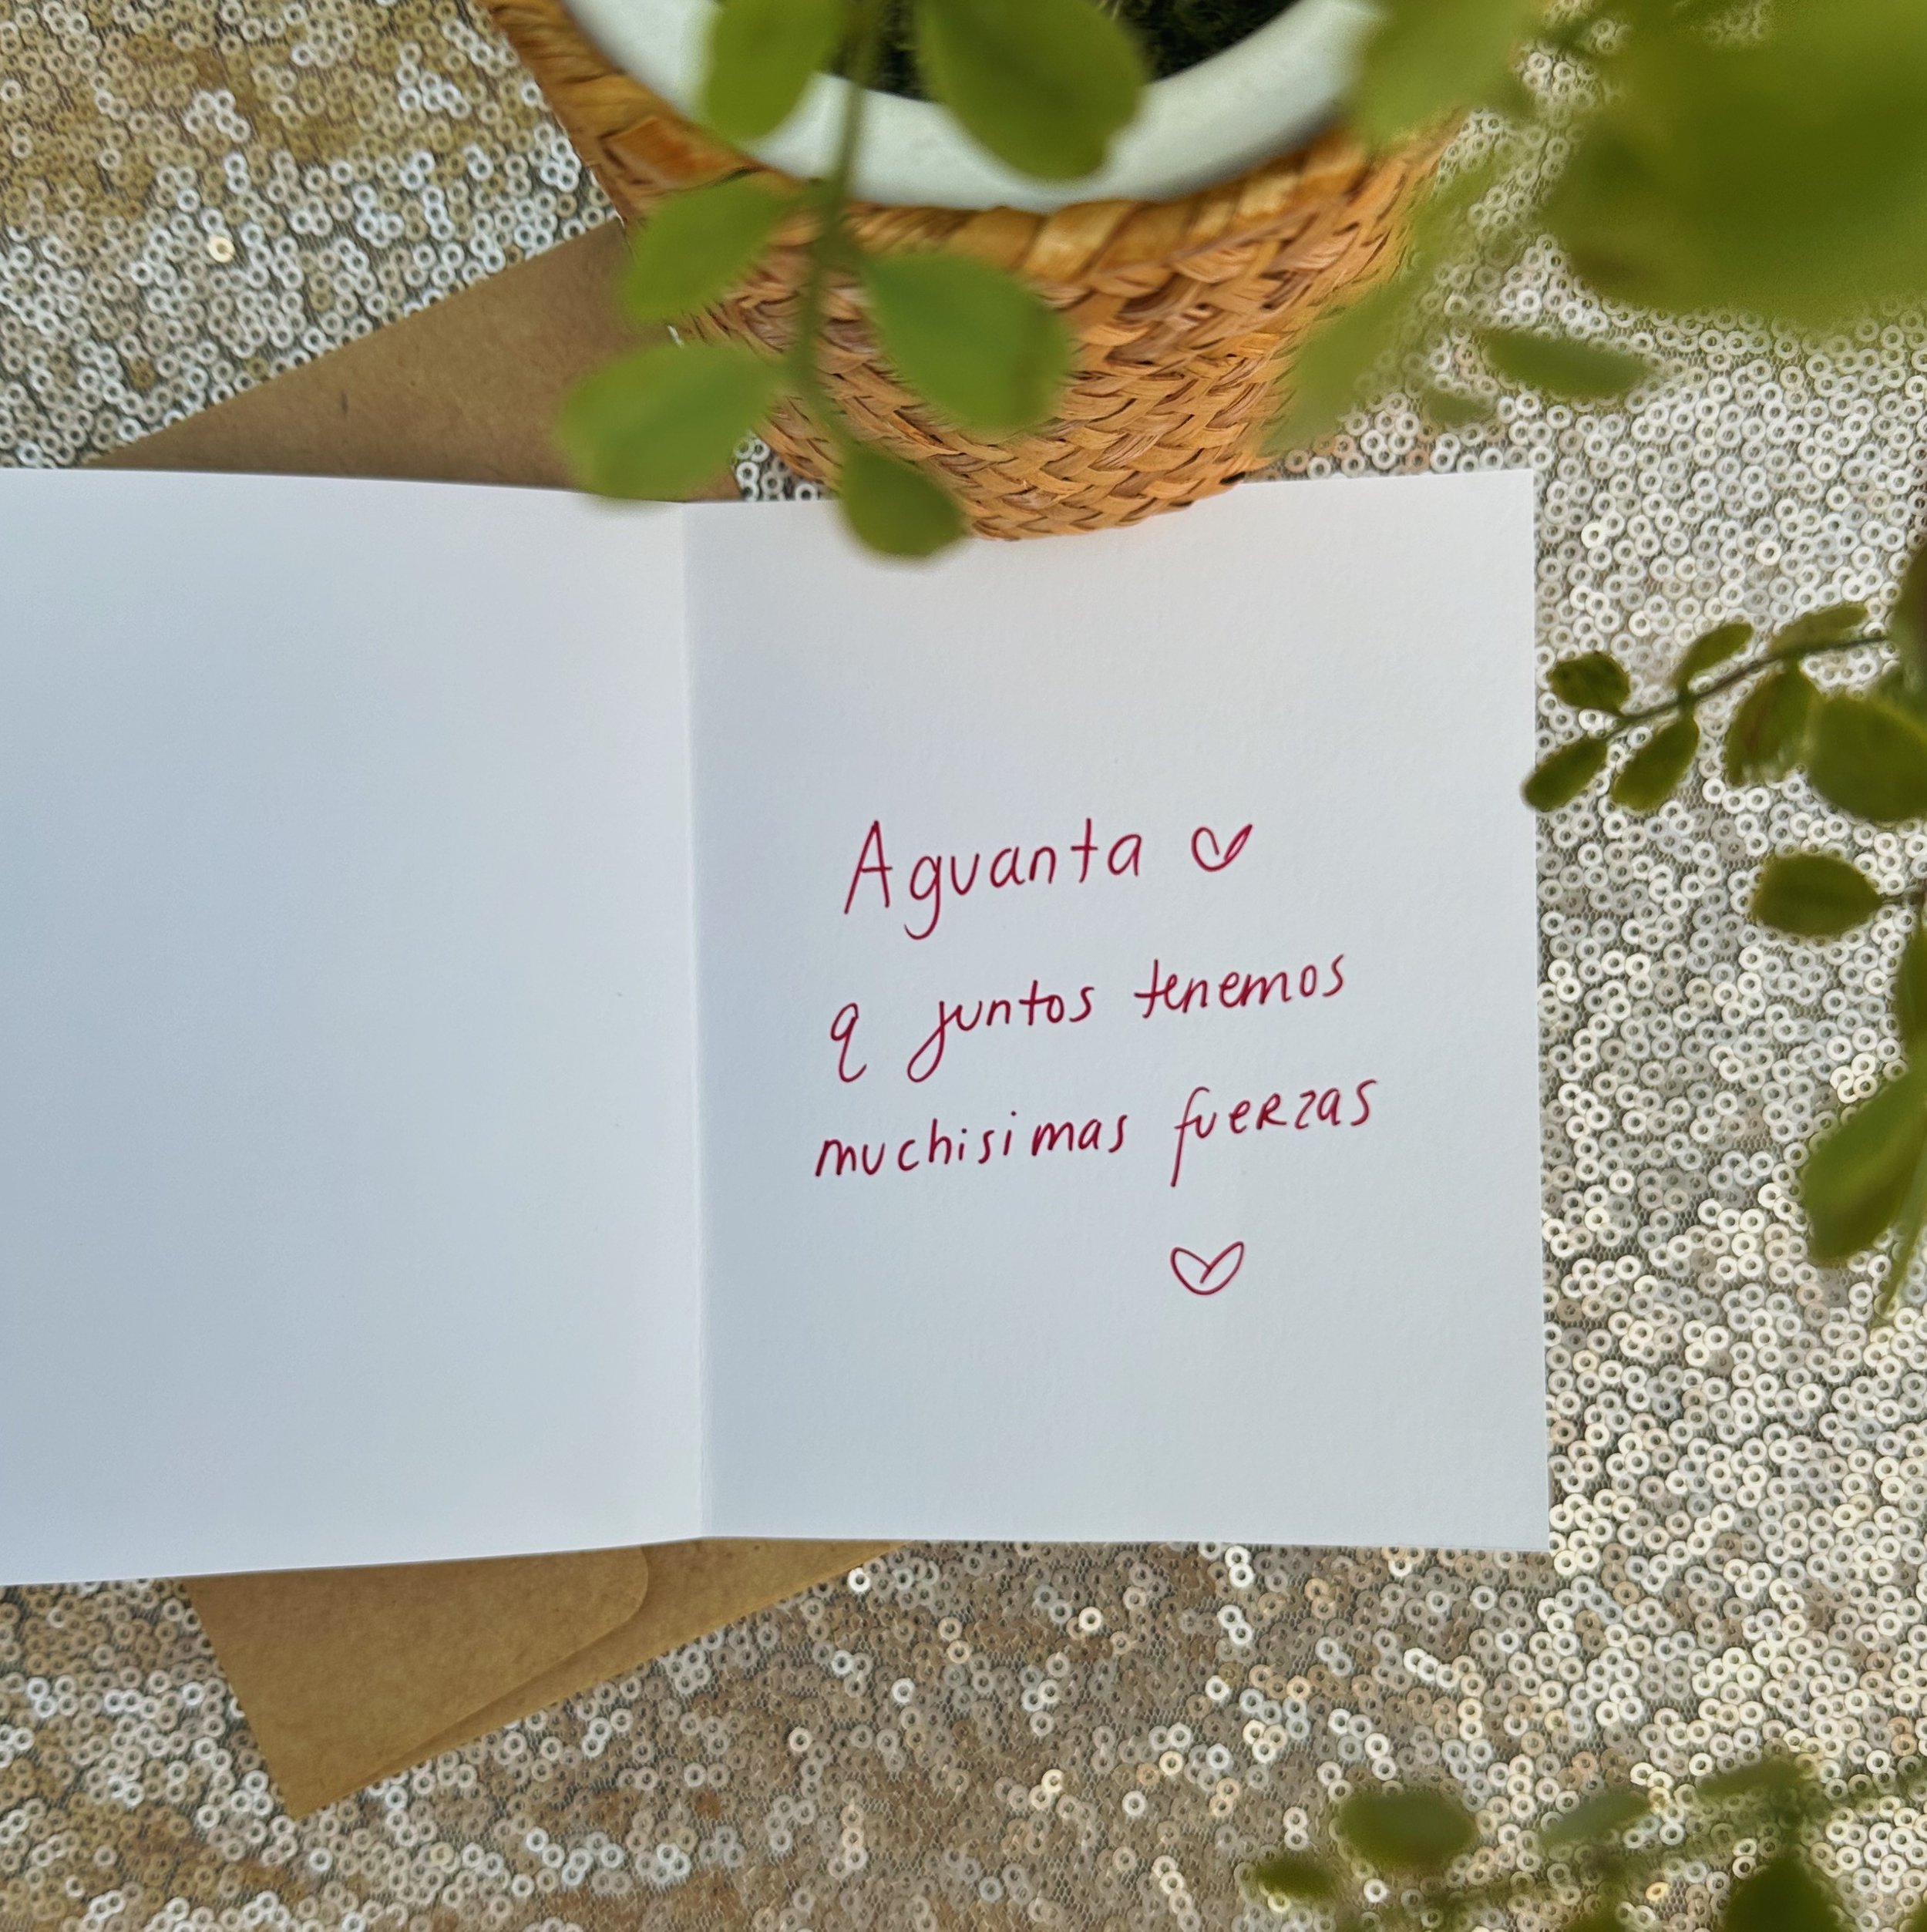 Aguanta ♡
q juntos tenemos
muchisimas fuerzas
♡